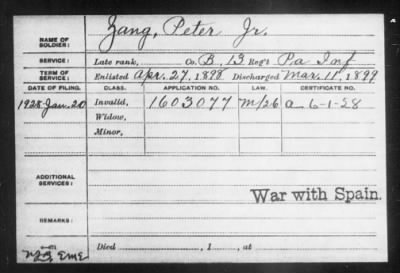 NAME OF SOLDIER: Zang, Peter Jr.
SERVICE: Late rank, Co. B, 13 Reg't Pa Inf
TERM OF SERVICE: Enlisted Apr. 27, 1898 Discharged Mar. 11, 1899
DATE OF FILING. CLASS. APPLICATION NO. LAW. CERTIFICATE NO.
1928 Jan. 20 Invalid, 1603077 M/26 a 6-1-28
Widow,
Minor,
ADDITIONAL SERVICES:
War with Spain.
REMARKS:
Died , 1 , at
EME